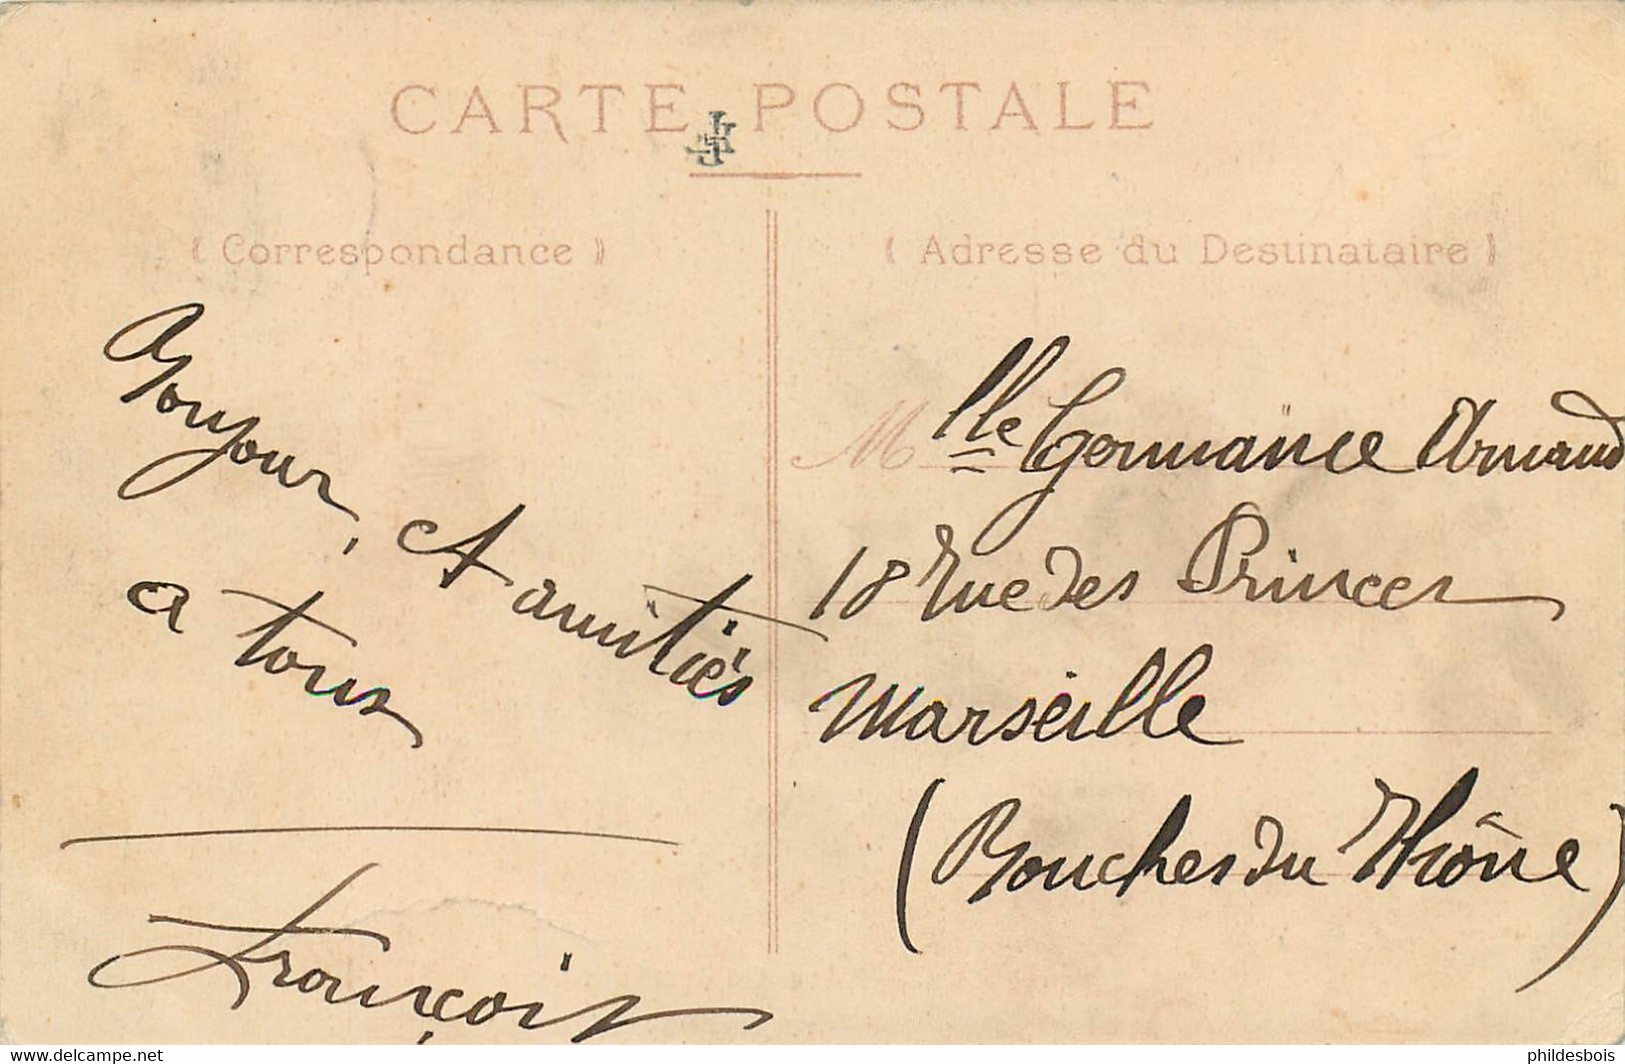 CARTE POSTALE
( Correspondance )
Bonjour, et amitiés
a tous
François
( Adresse du Destinataire )
Mlle Germaine Arnaud
18 Rue des Princes
Marseille
(Bouches du Rhône)
https://www.delcampe.net
phildesbois